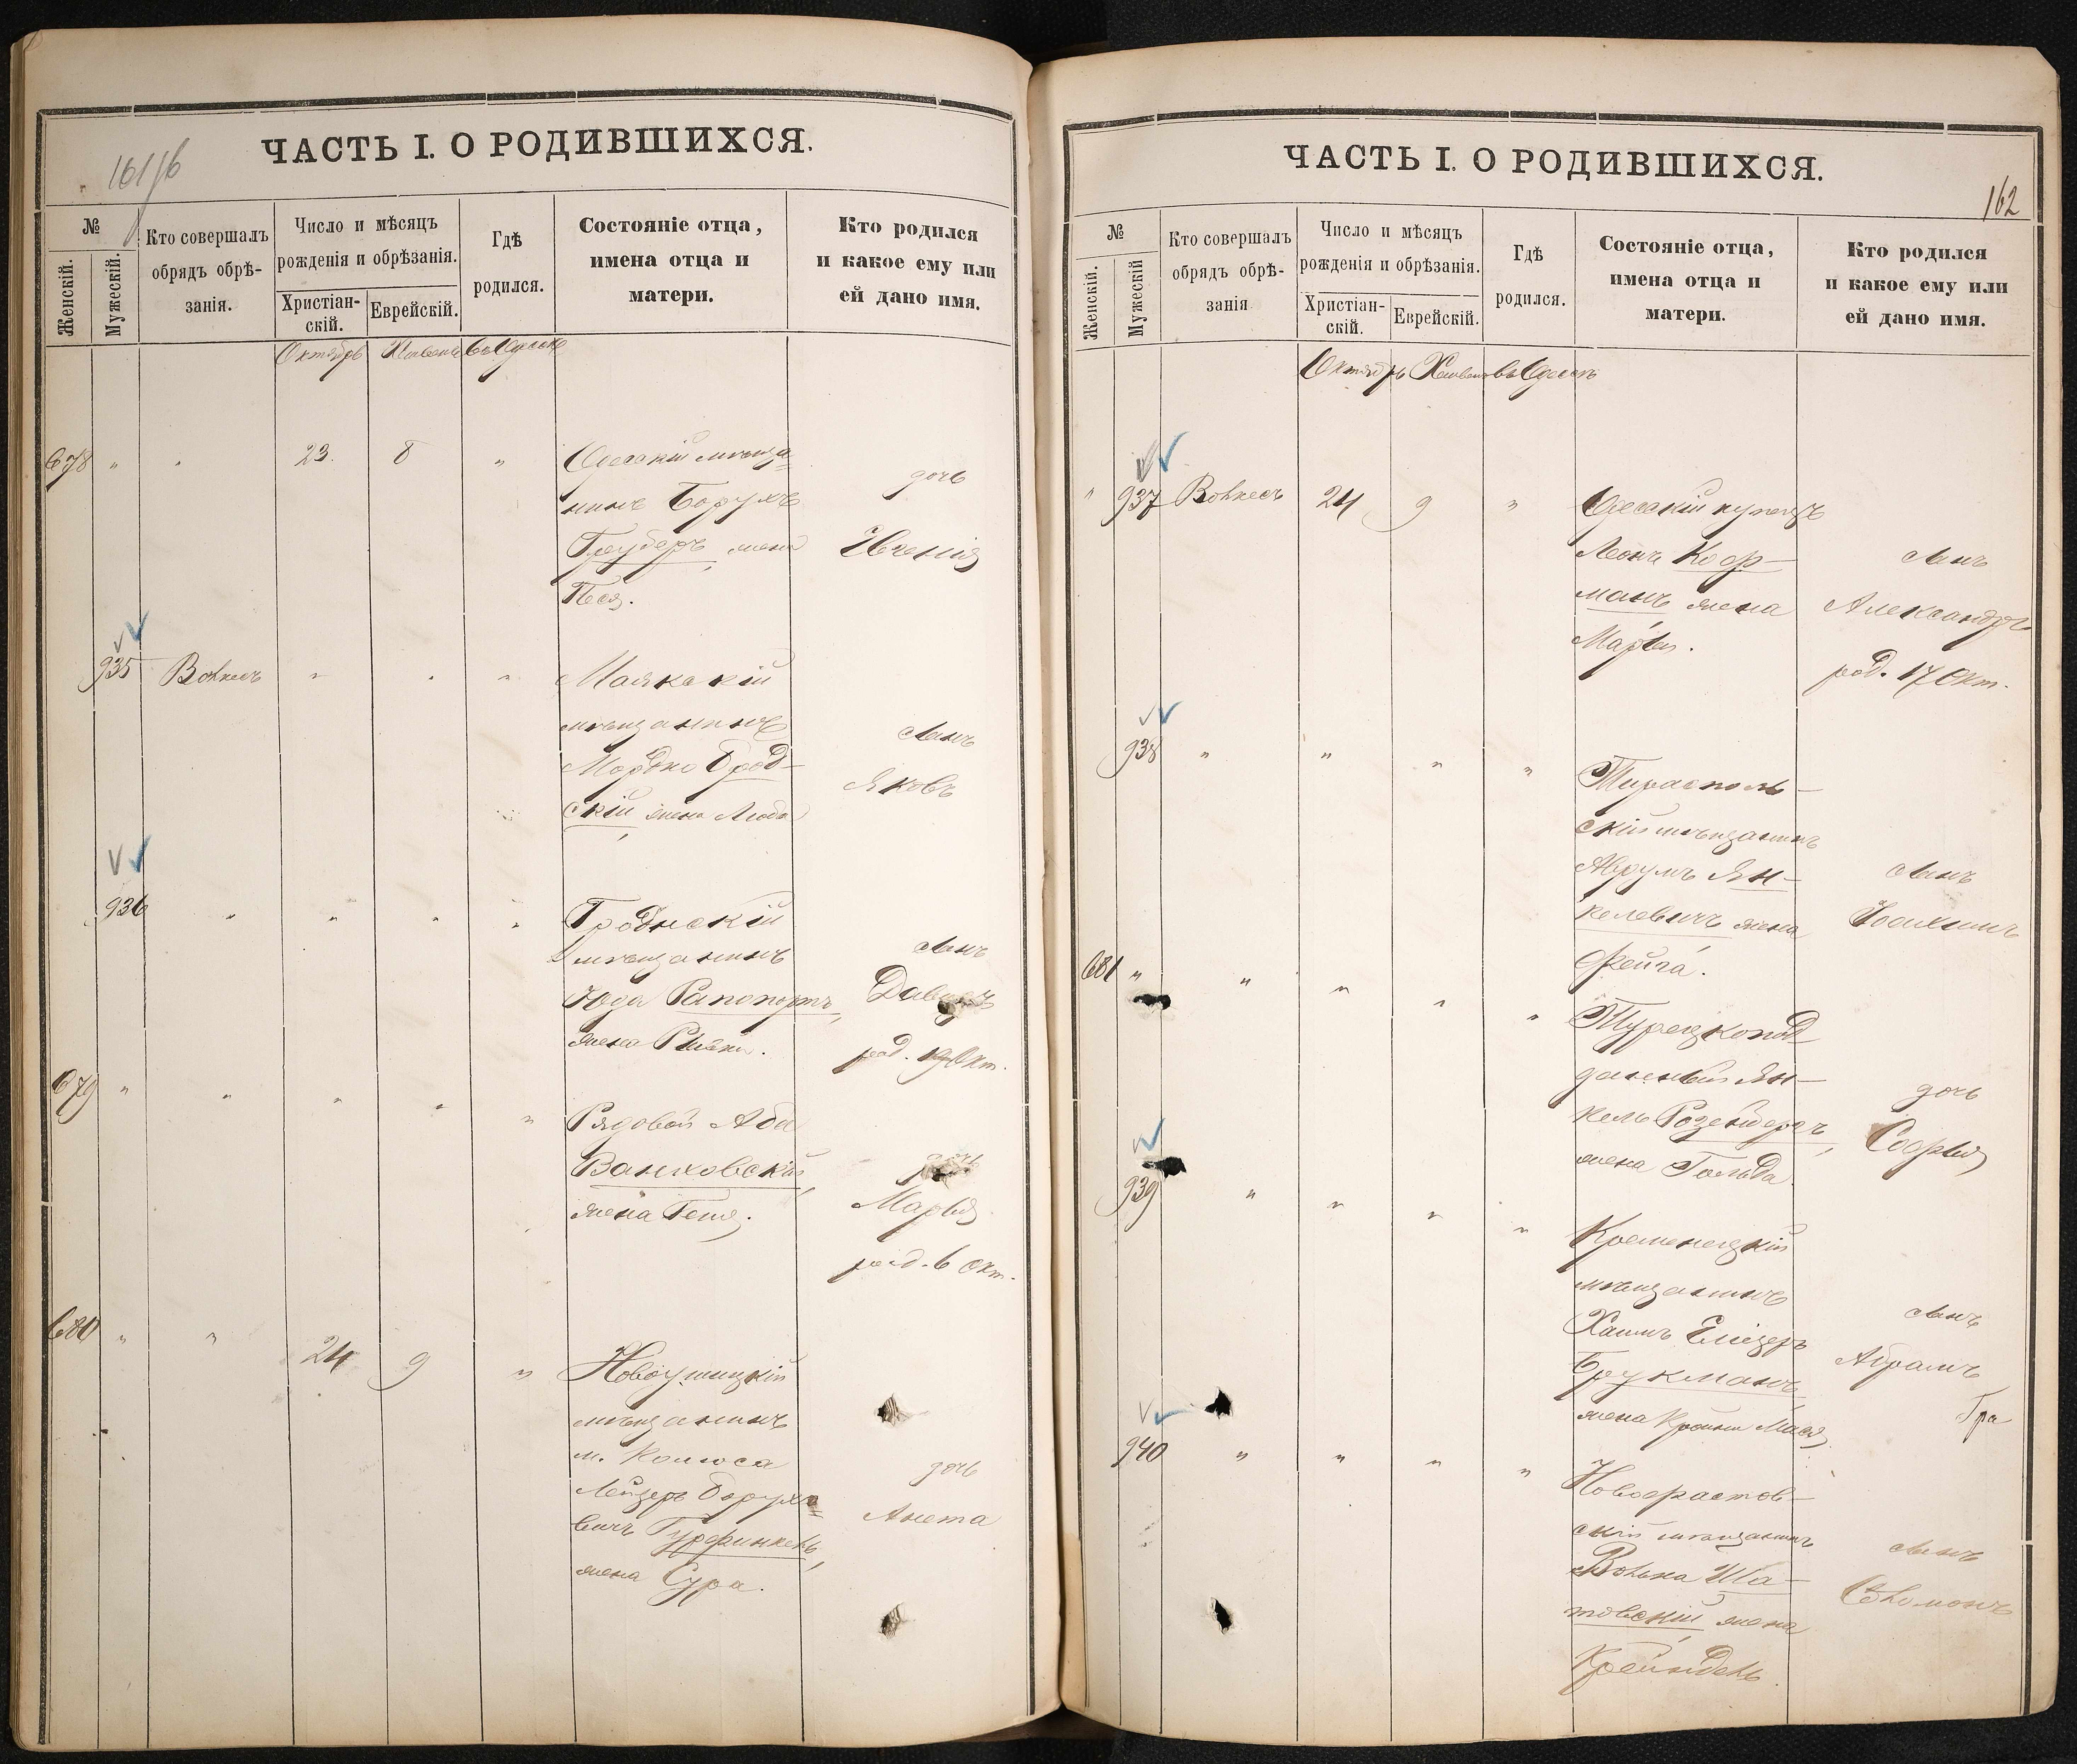 161 об
ЧАСТЬ I. О РОДИВШИХСЯ.
№
Женскій.
Мужескій.
Кто совершалъ
обрядъ обрѣ-
занія.
Число и мѣсяцъ
рожденія и обрѣзанія.
Христіан-
скій.
Еврейскій.
Гдѣ
родился.
Состояніе отца,
имена отца и
матери.
Кто родился
и какое ему или
ей дано имя.
Октябрь Хешвенъ въ Одессѣ
678 " " 23. 8 " Одесскій мѣща=
нинъ Борухъ
Груберъ, жена
Песя.
дочь
Евгенія
935 Вольнесъ " " " Маякскій
мѣщанинъ
Мордко Брод-
скій, жена Люба
сынъ
Яковъ
936 " " " " Гродненскій
мѣщанинъ
Юда Рапопортъ,
жена Ривка.
сынъ
Давидъ
род. 19 Окт.
679 " " " " " Рядовой Аба
Ванховскій,
жена Геня.
дочь
Марья
род. 6 Окт.
680 " " 24 9 " Новоушицкій
мѣщанинъ
м. Калюса
Лейзеръ Борухо=
вичъ Гурфинкель,
жена Сура.
дочь
Анета
ЧАСТЬ I. О РОДИВШИХСЯ.
162
№
Женскій.
Мужескій
Кто совершалъ
обрядъ обрѣ-
занія
Число и мѣсяцъ
рожденія и обрѣзанія.
Христіан-
скій.
Еврейскій.
Гдѣ
родился.
Состояніе отца,
имена отца и
матери.
Кто родился
и какое ему или
ей дано имя.
Октябрь Хешвенъ въ Одессѣ
" 937 Вольнесъ 24 9 " Одесскій купецъ
Леонъ Коф-
манъ, жена
Марья.
сынъ
Александръ
род. 17 Окт.
938 " " " " Тирасполь-
скій мѣщанинъ
Аврумъ Ян-
келевичъ жена
Фейга.
сынъ
Іоахимъ
681 " " " " " Турецкопод-
данный Ян-
кель Розенбергъ,
жена Гольда.
дочь
Софья
939 " " " " Кременецкій
мѣщанинъ
Хаимъ Еліезеръ
Брукманъ,
жена Крейна Мася
сынъ
Абрамъ
940 " " " " Новофастов-
скій мѣщанинъ
Волька Ша-
товскій, жена
Крейндель.
сынъ
Соломонъ